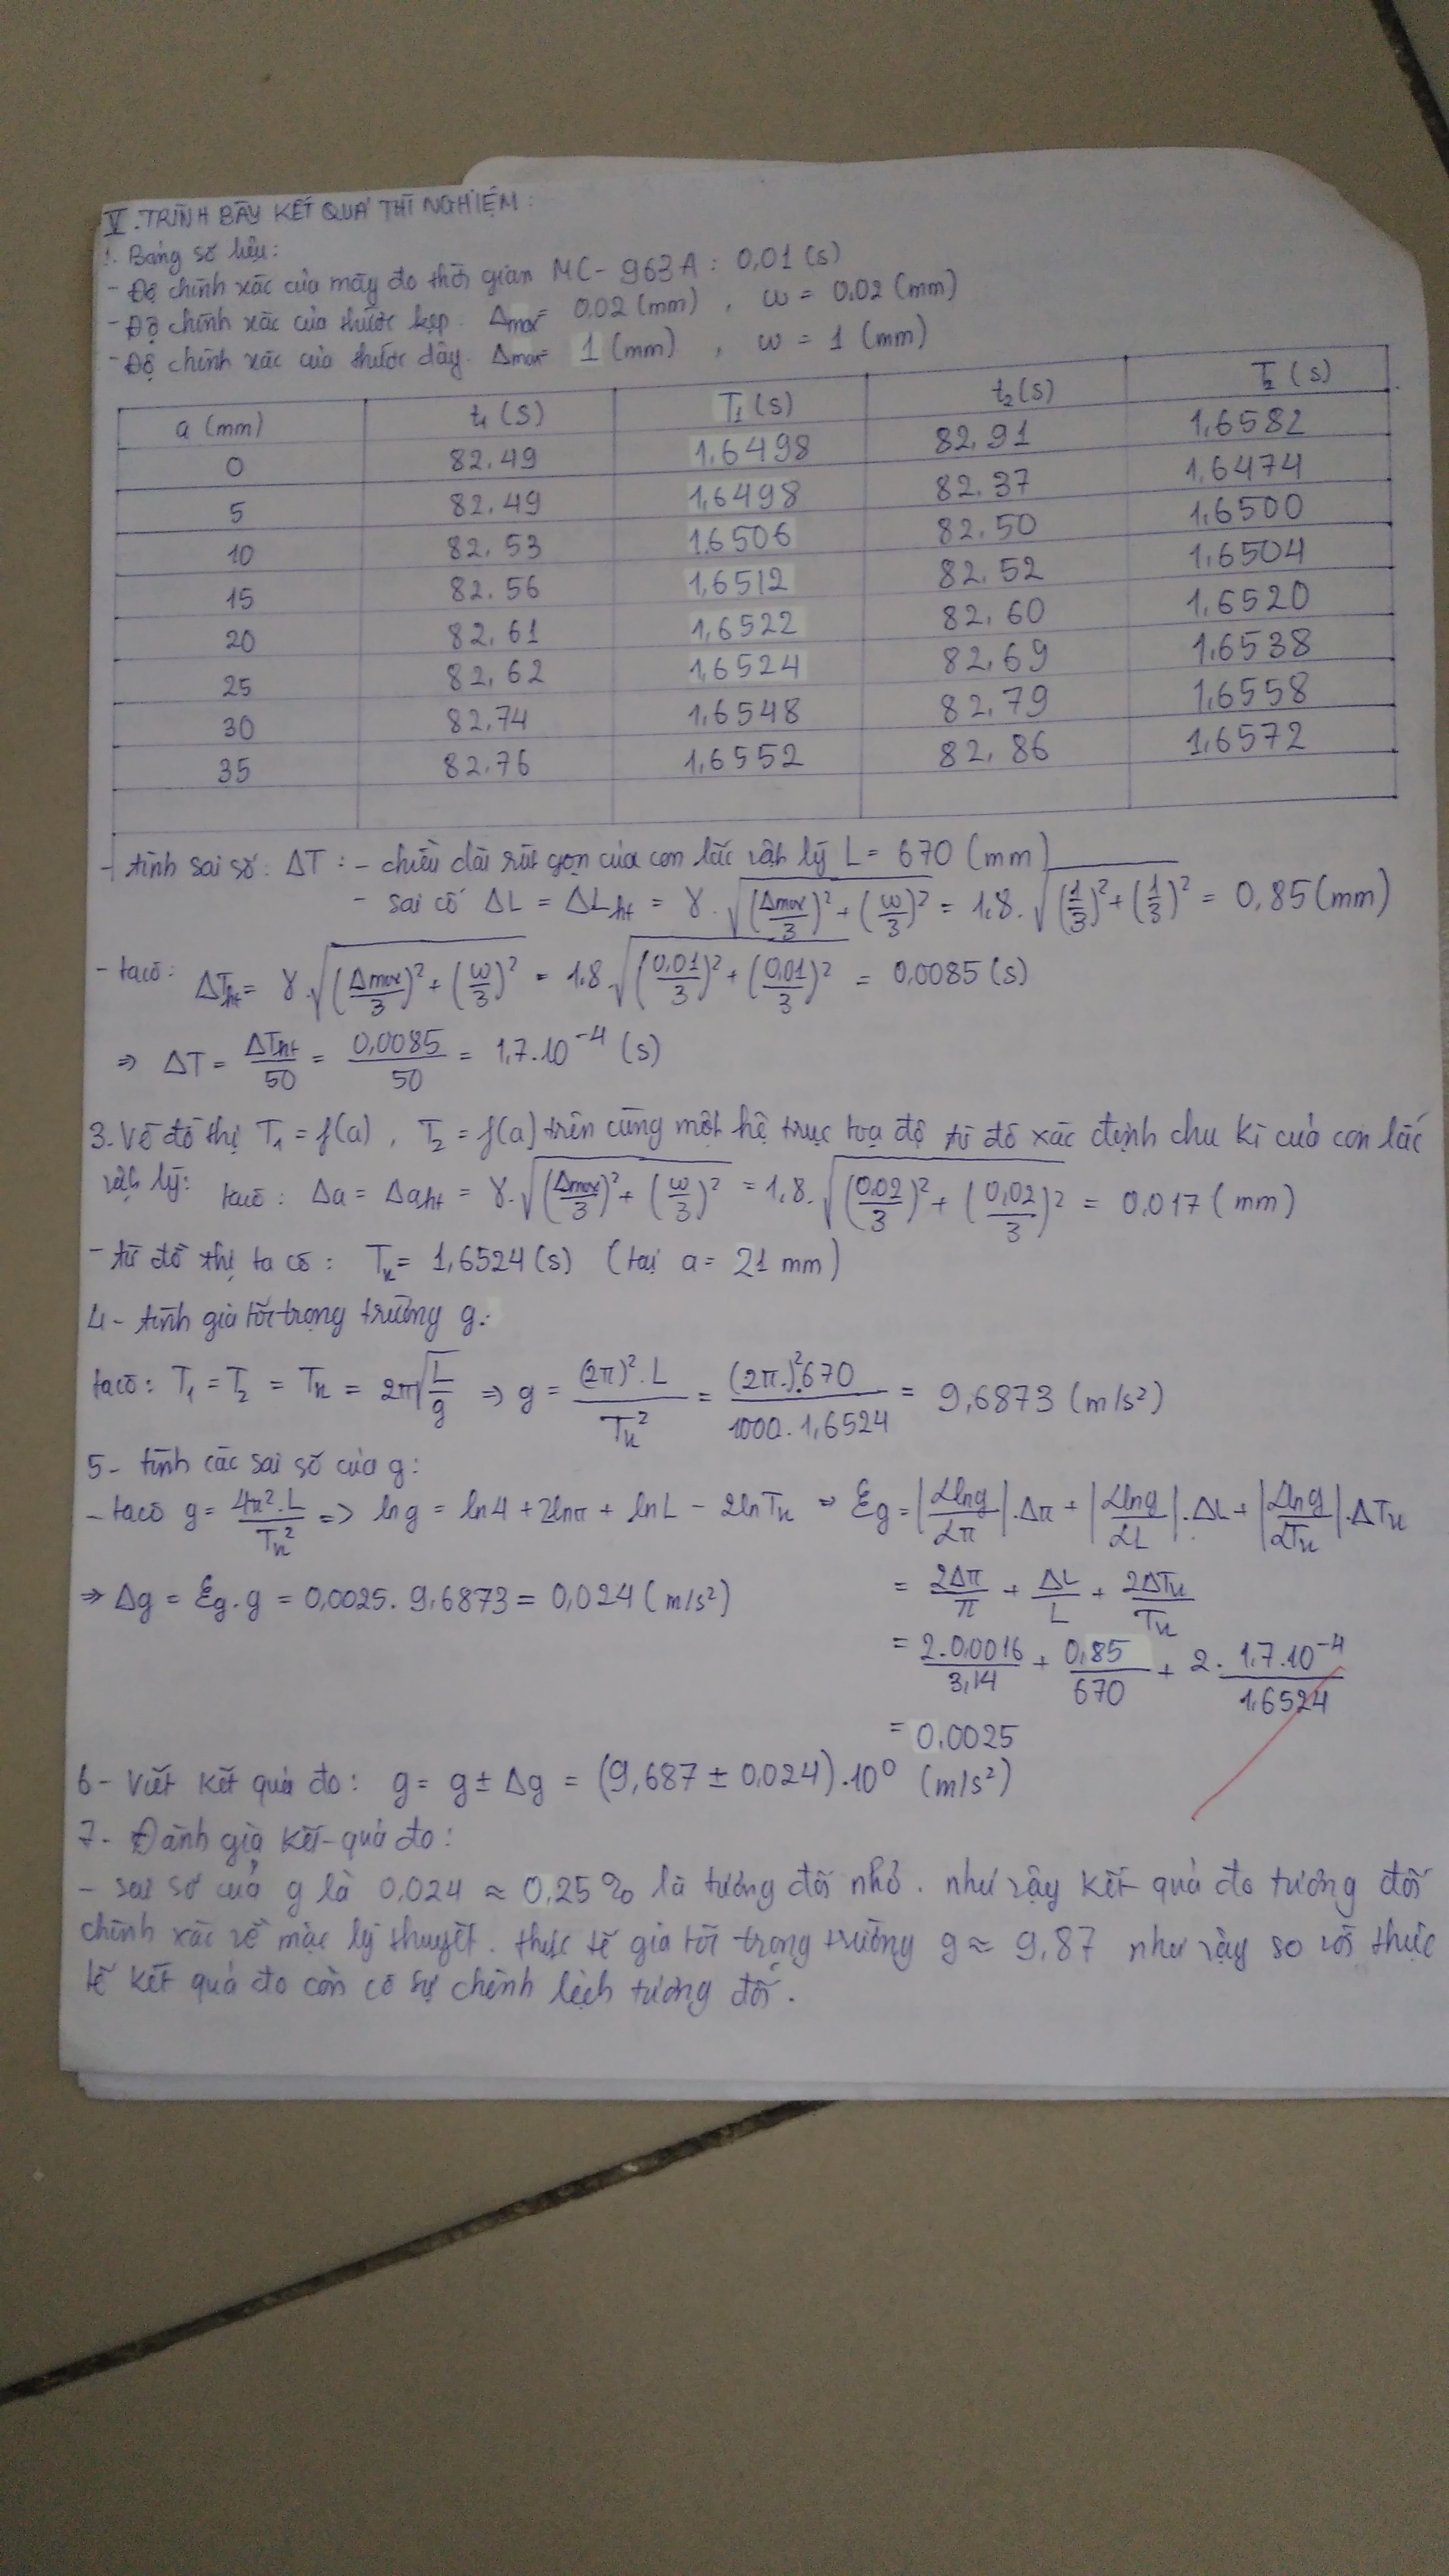 V. TRÌNH BÀY KẾT QUẢ THÍ NGHIỆM:
1. Bảng số liệu:
- Độ chính xác của máy đo thời gian MC-963A: 0,01 (s)
- Độ chính xác của thước kẹp. Δmax= 0.02 (mm), ω = 0.02 (mm)
- Độ chính xác của thước dây. Δmax= 1 (mm), ω = 1 (mm)
a (mm) t₁ (s) T₁ (s) t₂ (s) T₂ (s)
0 82.49 1,6498 82.91 1,6582
5 82.49 1,6498 82.37 1,6474
10 82.53 1.6506 82.50 1,6500
15 82.56 1,6512 82.52 1,6504
20 82.61 1,6522 82.60 1,6520
25 82.62 1,6524 82.69 1,6538
30 82.74 1,6548 82.79 1,6558
35 82.76 1,6552 82.86 1,6572
- tính sai số: ΔT: - chiều dài rút gọn của con lắc vật lý L = 670 (mm)
- sai số ΔL = ΔLht = γ.√((Δmax/3)² + (ω/3)²) = 1,8.√((1/3)² + (1/3)²) = 0,85 (mm)
- ta có: ΔTht = γ.√((Δmax/3)² + (ω/3)²) = 1,8.√((0,01/3)² + (0,01/3)²) = 0,0085 (s)
⇒ ΔT = ΔTht/50 = 0,0085/50 = 1,7.10⁻⁴ (s)
3. Vẽ đồ thị T₁ = f(a), T₂ = f(a) trên cùng một hệ trục toạ độ từ đó xác định chu kì của con lắc
vật lý: ta có: Δa = Δaht = γ.√((Δmax/3)² + (ω/3)²) = 1,8.√((0.02/3)² + (0,02/3)²) = 0,017 (mm)
- từ đồ thị ta có: Tₙ = 1,6524 (s) (tại a = 21 mm)
4- tính gia tốc trọng trường g:
ta có: T₁ = T₂ = Tₙ = 2π√(L/g) ⇒ g = (2π)².L/Tₙ² = (2π)².670/1000.1,6524 = 9,6873 (m/s²)
5- tính các sai số của g:
- ta có g = 4π².L/Tₙ² => ln g = ln4 + 2lnπ + lnL - 2lnTₙ ⇒ Ɛg = |∂lng/∂π|.Δπ + |∂lng/∂L|.ΔL + |∂lng/∂Tₙ|.ΔTₙ
= 2Δπ/π + ΔL/L + 2ΔTₙ/Tₙ
⇒ Δg = Ɛg.g = 0,0025. 9,6873 = 0,024 (m/s²)
= 2.0,0016/3,14 + 0,85/670 + 2. 1,7.10⁻⁴/1,6524
= 0.0025
6- Viết kết quả đo: g = g ± Δg = (9,687 ± 0,024).10⁰ (m/s²)
7- Đánh giá kết quả đo:
- sai số của g là 0,024 ≈ 0,25% là tương đối nhỏ. như vậy kết quả đo tương đối
chính xác về mặc lý thuyết. thực tế gia tốc trọng trường g ≈ 9,87 như vậy so với thực
tế kết quả đo còn có sự chênh lệch tương đối.